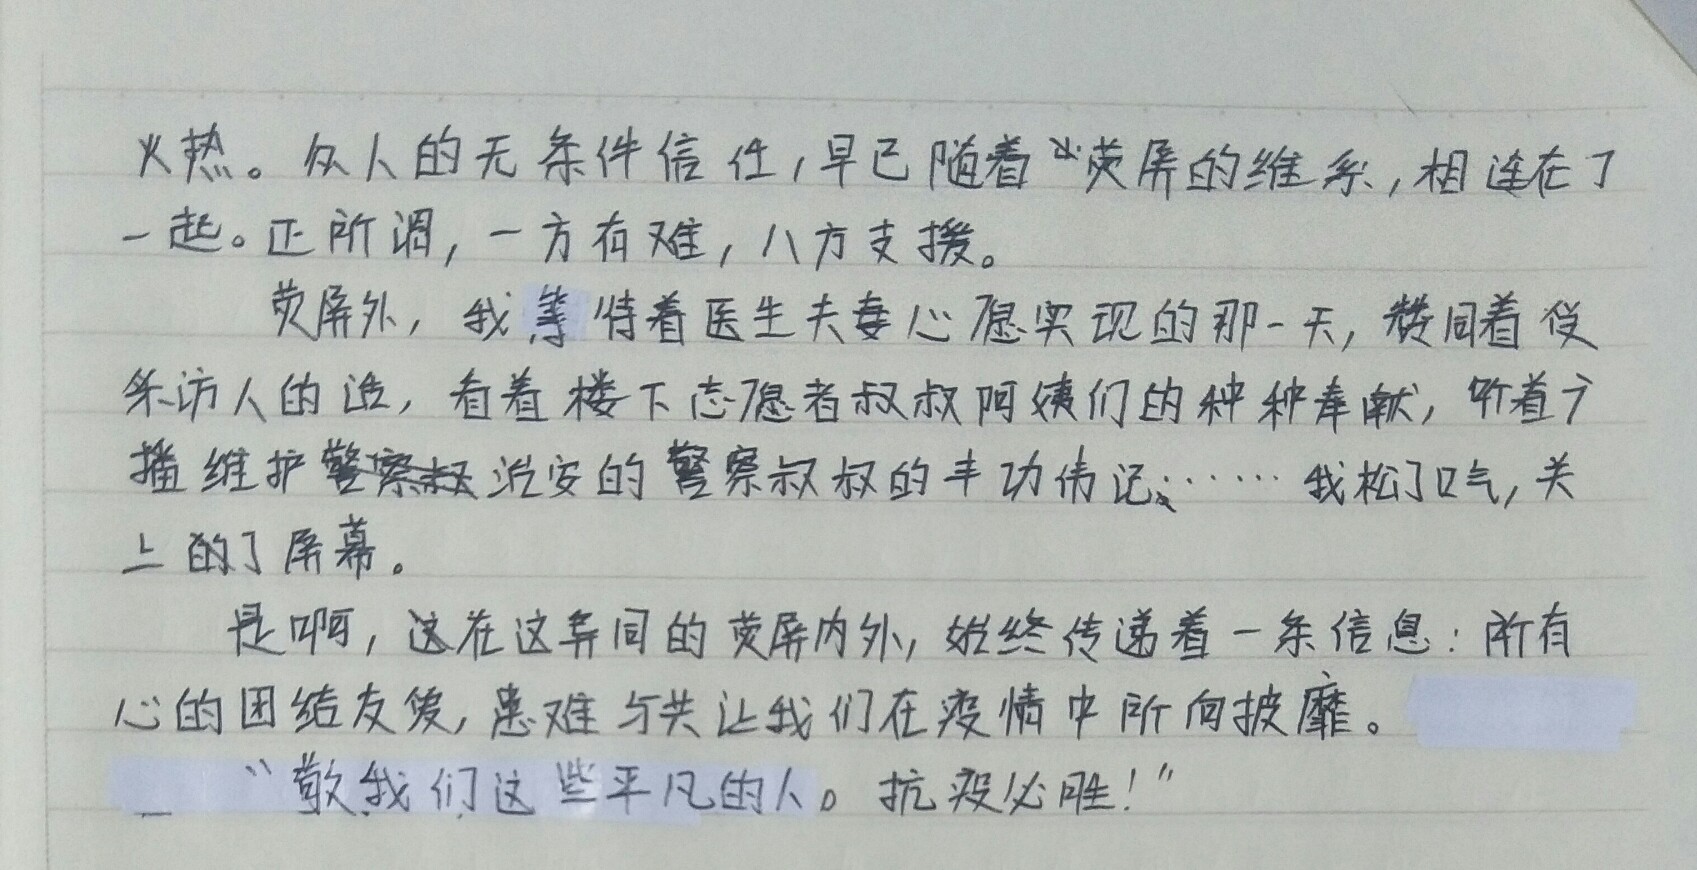 火热。众人的无条件信任,早已随着“荧屏的维系,相连在了
一起。正所谓,一方有难,八方支援。
荧屏外,我等待着医生夫妻心愿实现的那一天,赞同着受
采访人的话,看着楼下志愿者叔叔阿姨们的种种奉献,听着广
播维护治安的警察叔叔的丰功伟记……我松了口气,关
上的了屏幕。
是啊,这在这异同的荧屏内外,始终传递着一条信息:所有
心的团结友爱,患难与共让我们在疫情中所向披靡。
“敬我们这些平凡的人。抗疫必胜!”